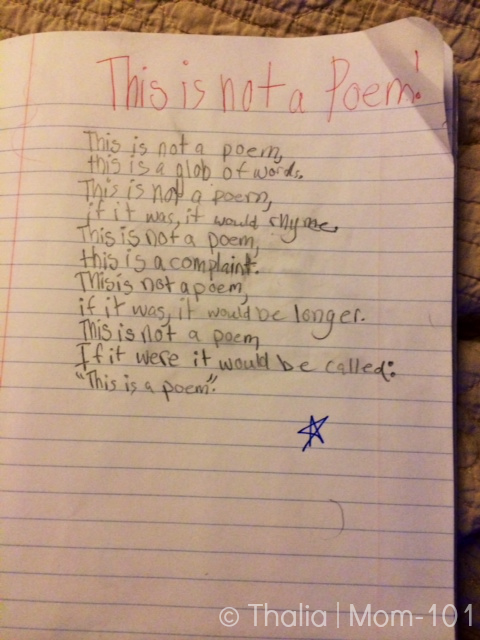 This is not a Poem!
This is not a poem,
this is a glob of words.
This is not a poem,
if it was, it would rhyme
This is not a poem,
this is a complaint.
This is not a poem,
if it was, it would be longer.
This is not a poem
If it were it would be called:
"This is a poem".
© Thalia | Mom-101